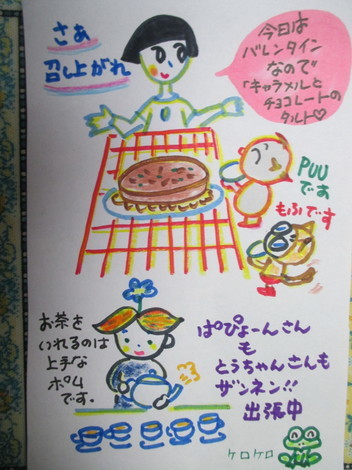 さあ
召し上がれ
今日は
バレンタイン
なので
「キャラメルと
チョコレートの
タルト♡
PUU
です
もふです
お茶を
いれるのは
上手な
ポム
です.
ぱぴよーんさん
も
とうちゃんさんも
ザンネン!!
出張中
ケロケロ